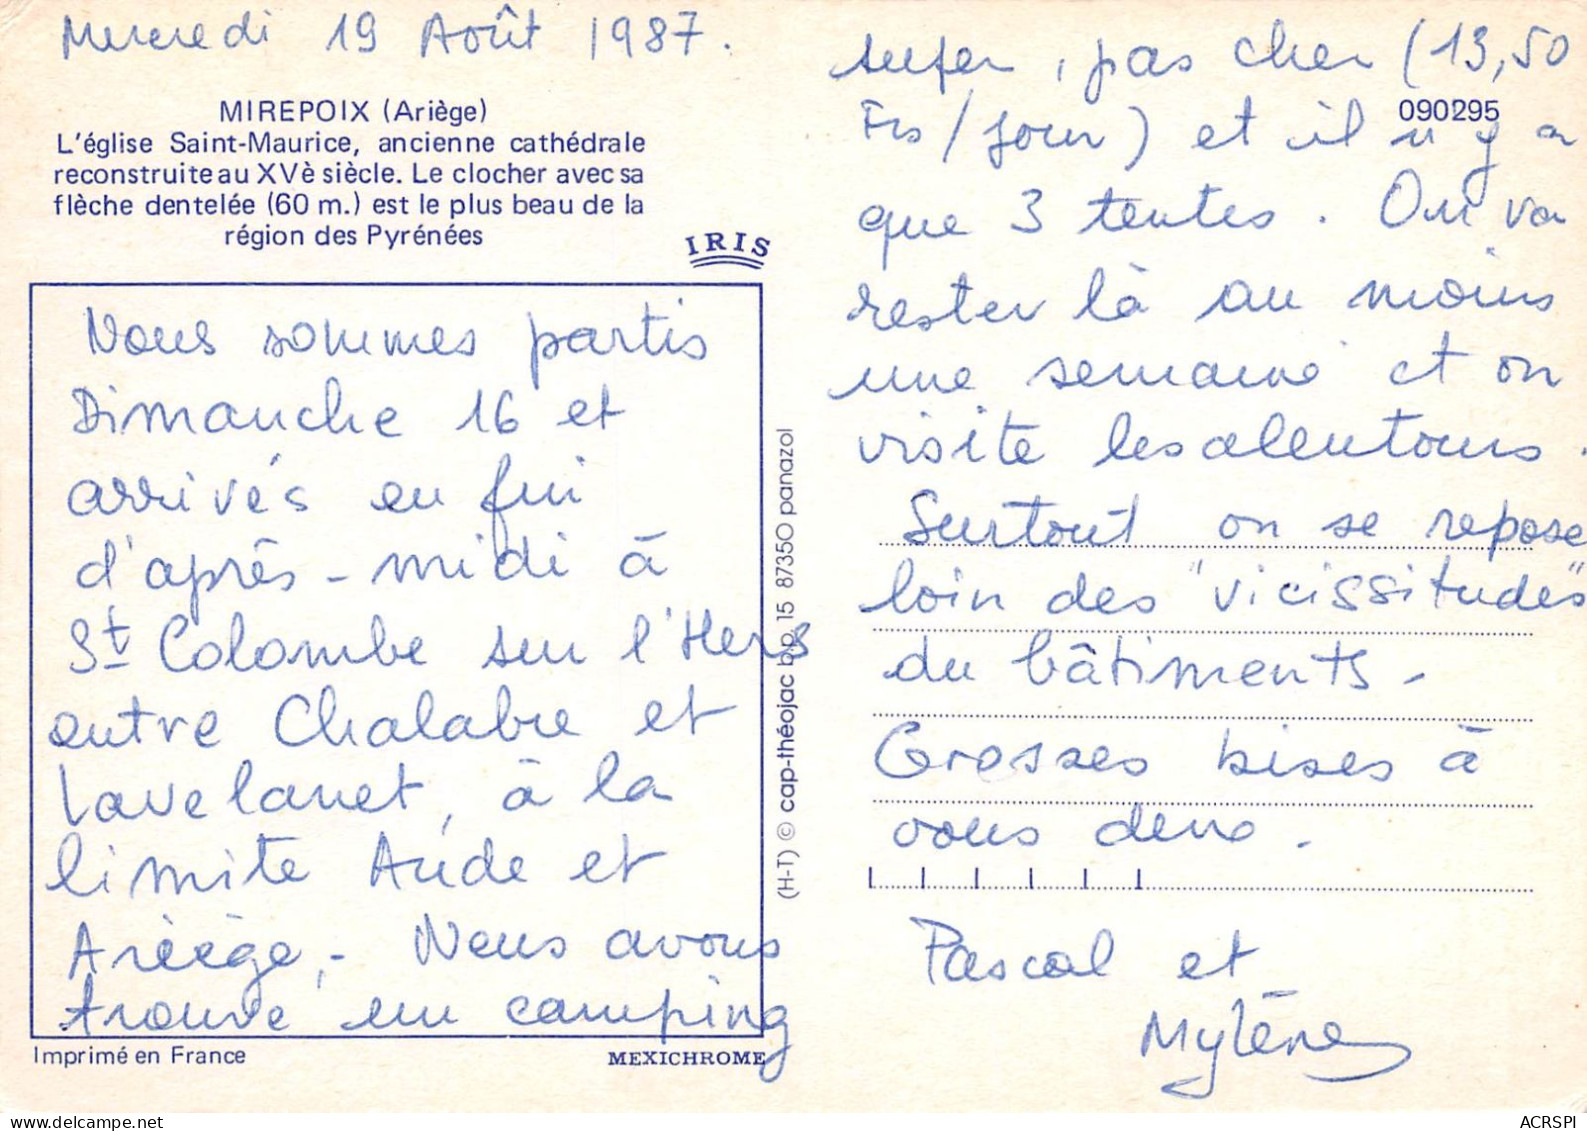 Mercredi 19 Août 1987.
MIREPOIX (Ariège)
L'église Saint-Maurice, ancienne cathédrale
reconstruite au XVè siècle. Le clocher avec sa
flèche dentelée (60 m.) est le plus beau de la
région des Pyrénées
IRIS
Nous sommes partis
Dimanche 16 et
arrivés en fin
d'après-midi à
St Colombe sur l'Hers
entre Chalabre et
Lavelanet, à la
limite Aude et
Ariège,- Nous avons
trouvé un camping
Imprimé en France
MEXICHROME
(H-T) © cap-théojac b.p. 15 87350 panazol
super, pas cher (13,50
090295
Frs/jour) et il n'y a
que 3 tentes. On va
rester là au moins
une semaine et on
visite les alentours.
Surtout on se repose
loin des "vicissitudes"
du bâtiments-
Grosses bises à
vous deux.
Pascal et
Mylène
ACRSPI